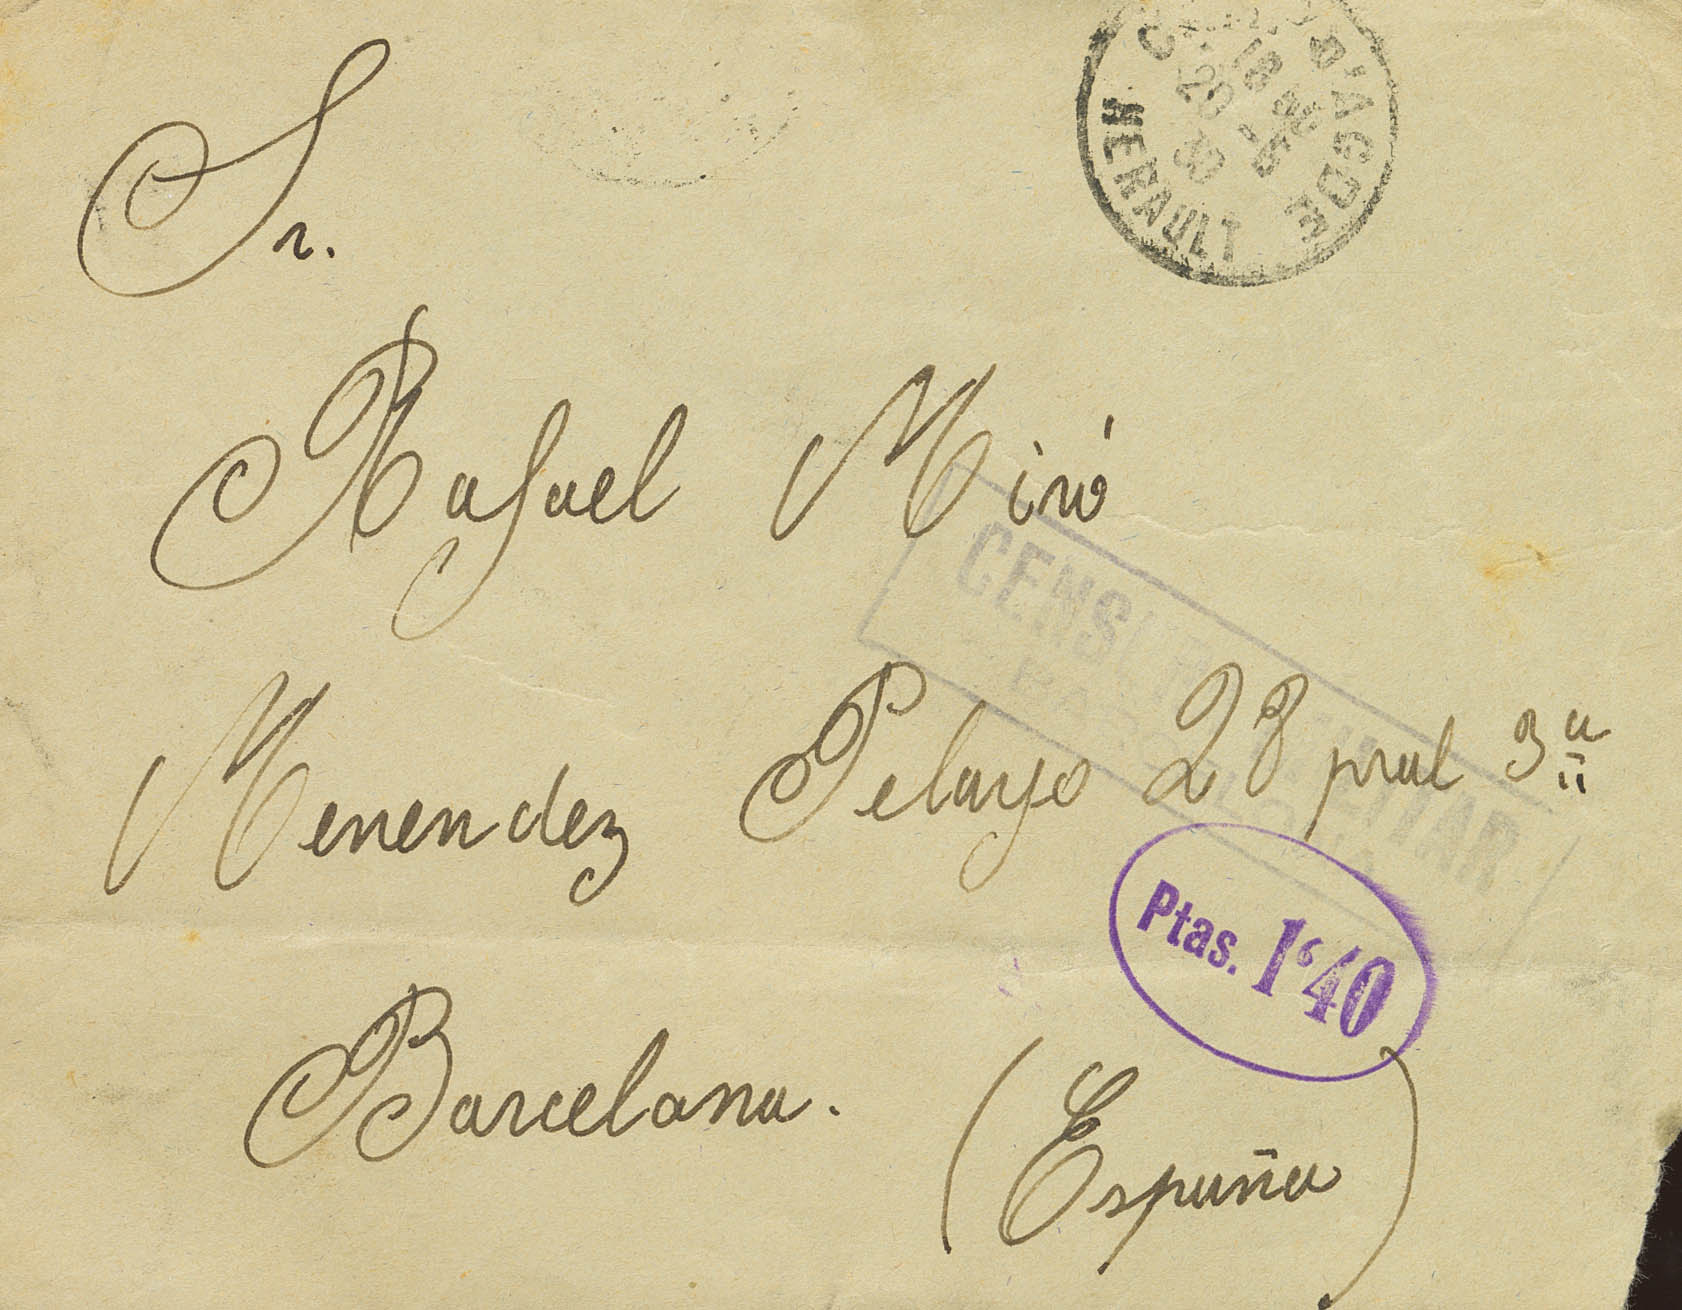 CAMP D'AGDE
18 30
20 -5
39
HERAULT
Sr.
Rafael Miró
CENSURA MILITAR
BARCELONA
Menendez Pelayo 28 pral 3ª
Ptas. 1'40
Barcelona.
(España)